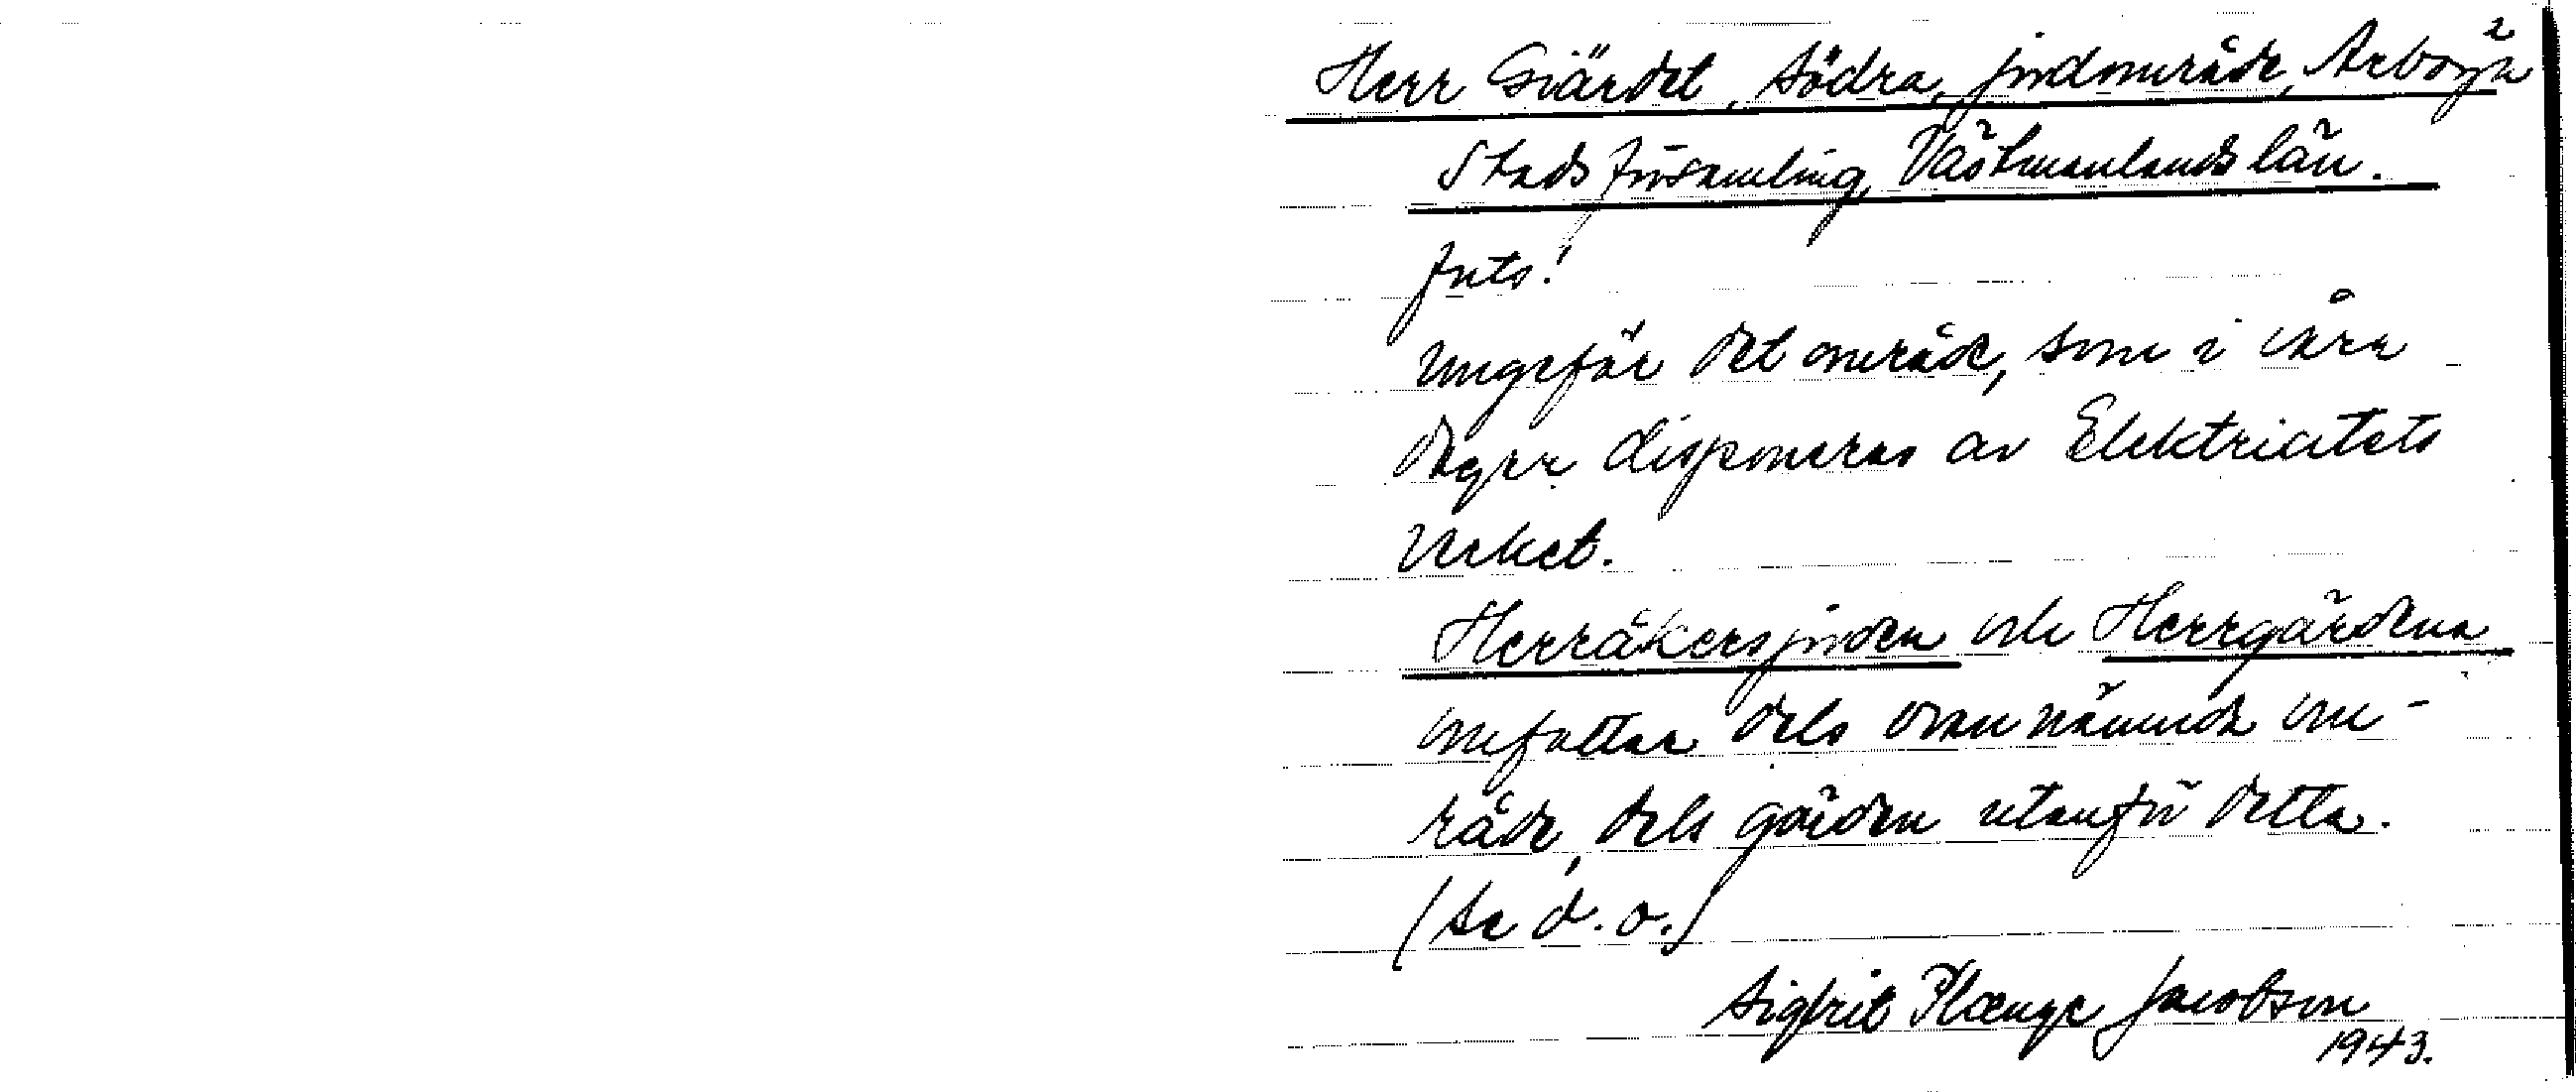 2
Herr Giärdet, Södra, jordområde, Arboga
Stadsförsamling, Västmanlands län.
Forts!
Ungefär det område, som i våra
dagar disponeras av Elektricitets
verket.
Herråkersjorden och Herrgärdena
omfattar dels ovannämnda om-
råde, dels gärden utanför detta.
(Se d. o.)
Sigfrid Plænge Jacobson
1943.